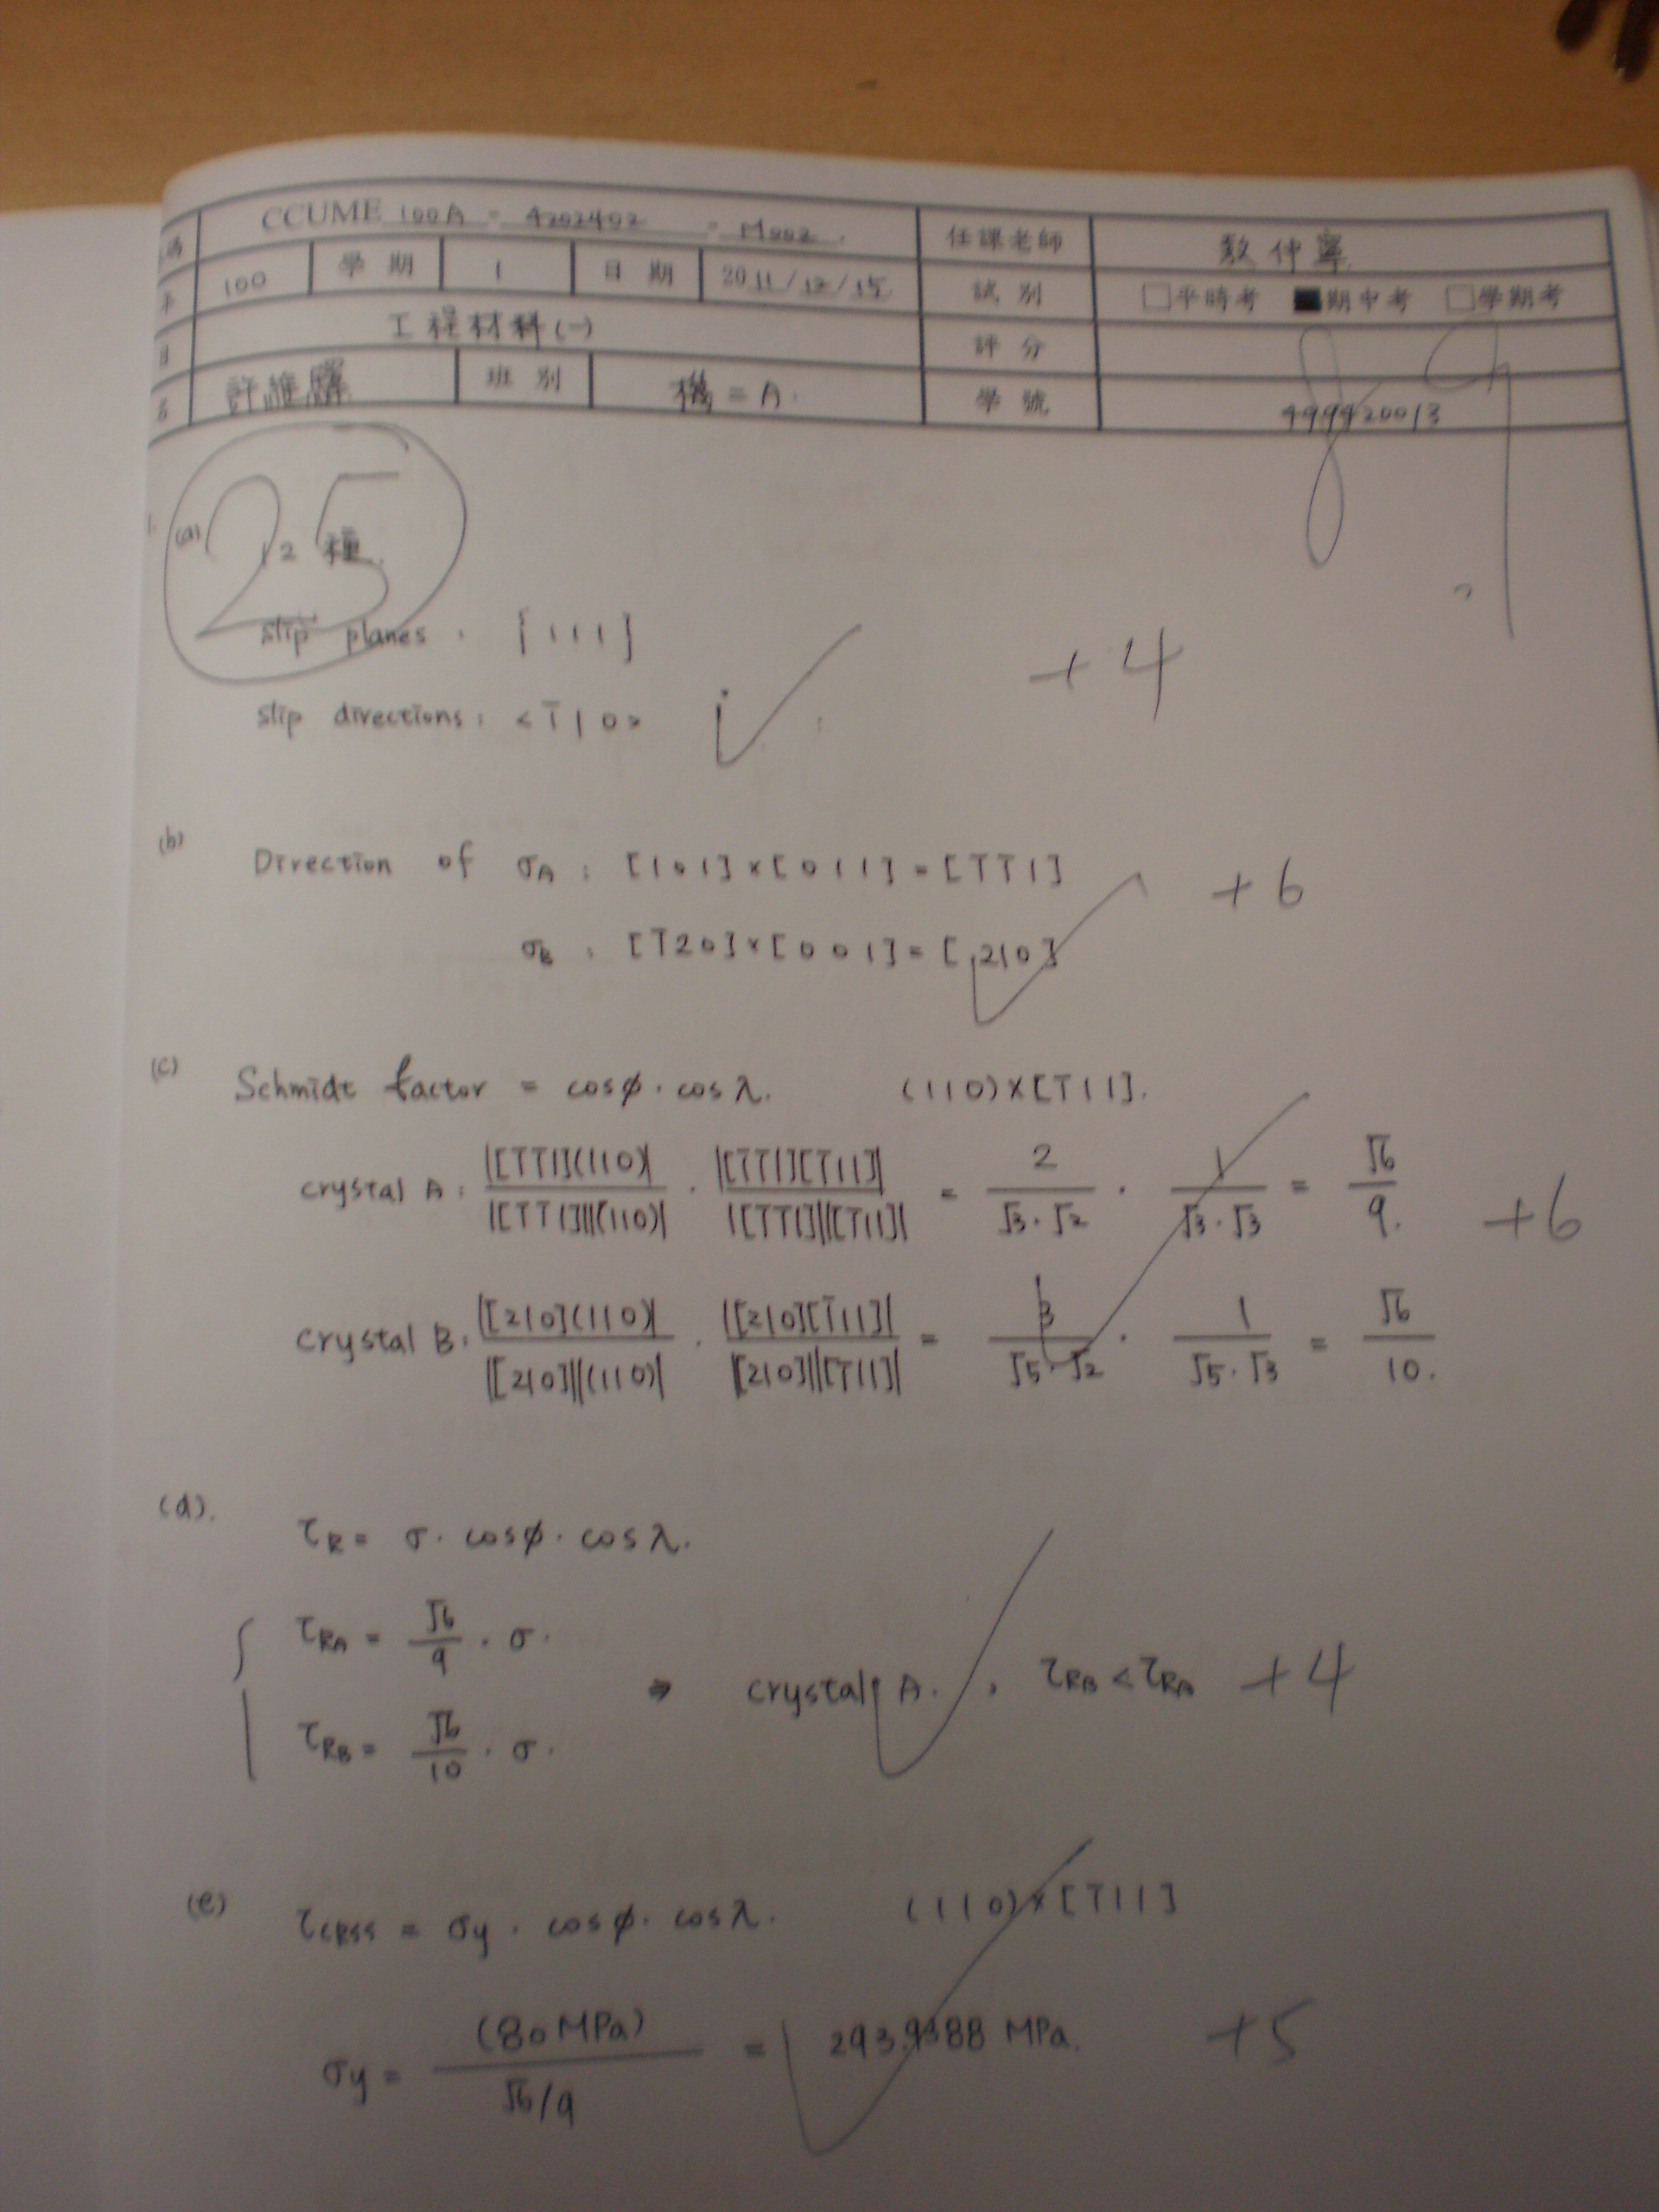 碼 CCUME 100A - 4202402 - M002 任課老師 敖仲寧
年 100 學期 1 日期 2011/12/15 試別 □平時考 ■期中考 □學期考
目 工程材料(一) 評分 89
名 班別 機=A. 學號 499420013
25
1. (a) 12 種.
slip planes: [111] +4
slip directions: <T̄10>
(b) Direction of σA : [101]×[011]=[T̄T̄1] +6
σB : [T̄20]×[001]=[210]
(c) Schmidt factor = cosφ·cosλ. (110)×[T̄11].
crystal A: |[T̄T̄1](110)| / |[T̄T̄1]||(110)| · |[T̄T̄1][T̄11]| / |[T̄T̄1]||[T̄11]| = 2/√3·√2 · 1/√3·√3 = √6/9. +6
crystal B: |[210](110)| / |[210]||(110)| · |[210][T̄11]| / |[210]||[T̄11]| = 3/√5·√2 · 1/√5·√3 = √6/10.
(d). τR= σ·cosφ·cosλ.
τRA = √6/9 · σ.
⇒ crystal A. , τRB < τRA +4
τRB = √6/10 · σ.
(e) τCRSS = σy · cosφ·cosλ. (110)×[T̄11]
σy = (80MPa) / √6/9 = 293.9388 MPa. +5